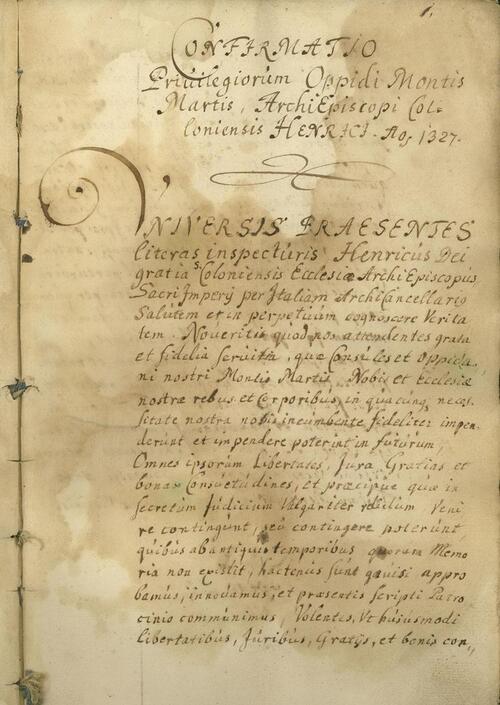 1.
CONFIRMATIO
Priuilegiorum Oppidi Montis
Martis, ArchiEpiscopi Col=
loniensis HENRICI. Ao, 1327.
VNIVERSIS PRAESENTES
literas inspecturis Henricus Dei
gratia S. Coloniensis Ecclesiæ ArchiEpiscopus
Sacri Imperij per Italiam ArchiCancellario
Salutem et in perpetuum cognoscere Verita
tem. Noveritis quod nos attendentes grata
et fidelia seruitia, quæ Consules et Oppida,
ni nostri Montis Martis Nobis et Ecclesiæ
nostræ rebus et Corporibus, in quacunq, neces
sitate nostra nobis incumbente fideliter impen.
derunt et impendere poterint in futurum,
Omnes ipsorum Libertates, Jura, Gratias et
bonas Consuetudines, et præcipue quæ in
secretum Judicium Vulgariter Veni
re contingunt, seu contingere poterunt
quibus ab antiquis temporibus quorum Memo
ria non existit, hactenus sunt gauisi appro
bamus, innodamus, et præsentis scripti Patro
cinio communimus, Volentes, Vt huiusmodi
Libertatibus, Juribus, Gratijs, et bonis con,,